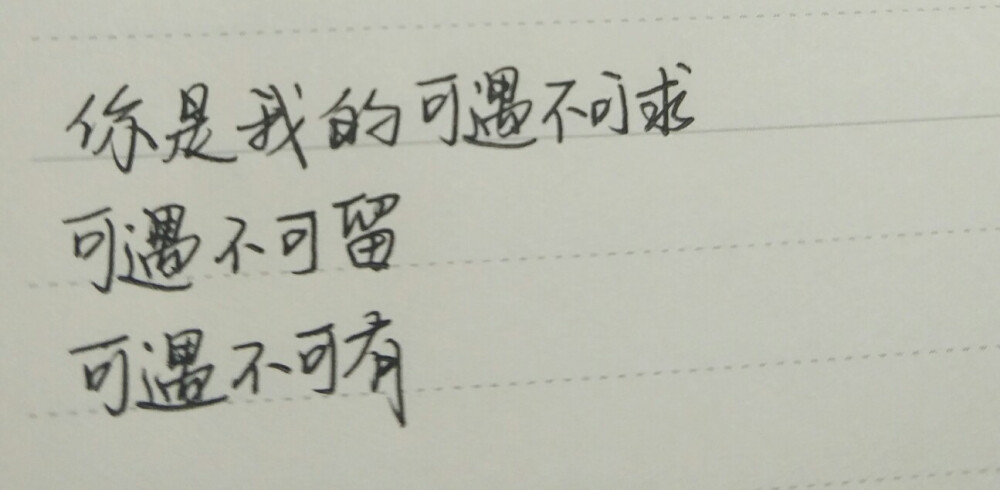 你是我的可遇不可求
可遇不可留
可遇不可有